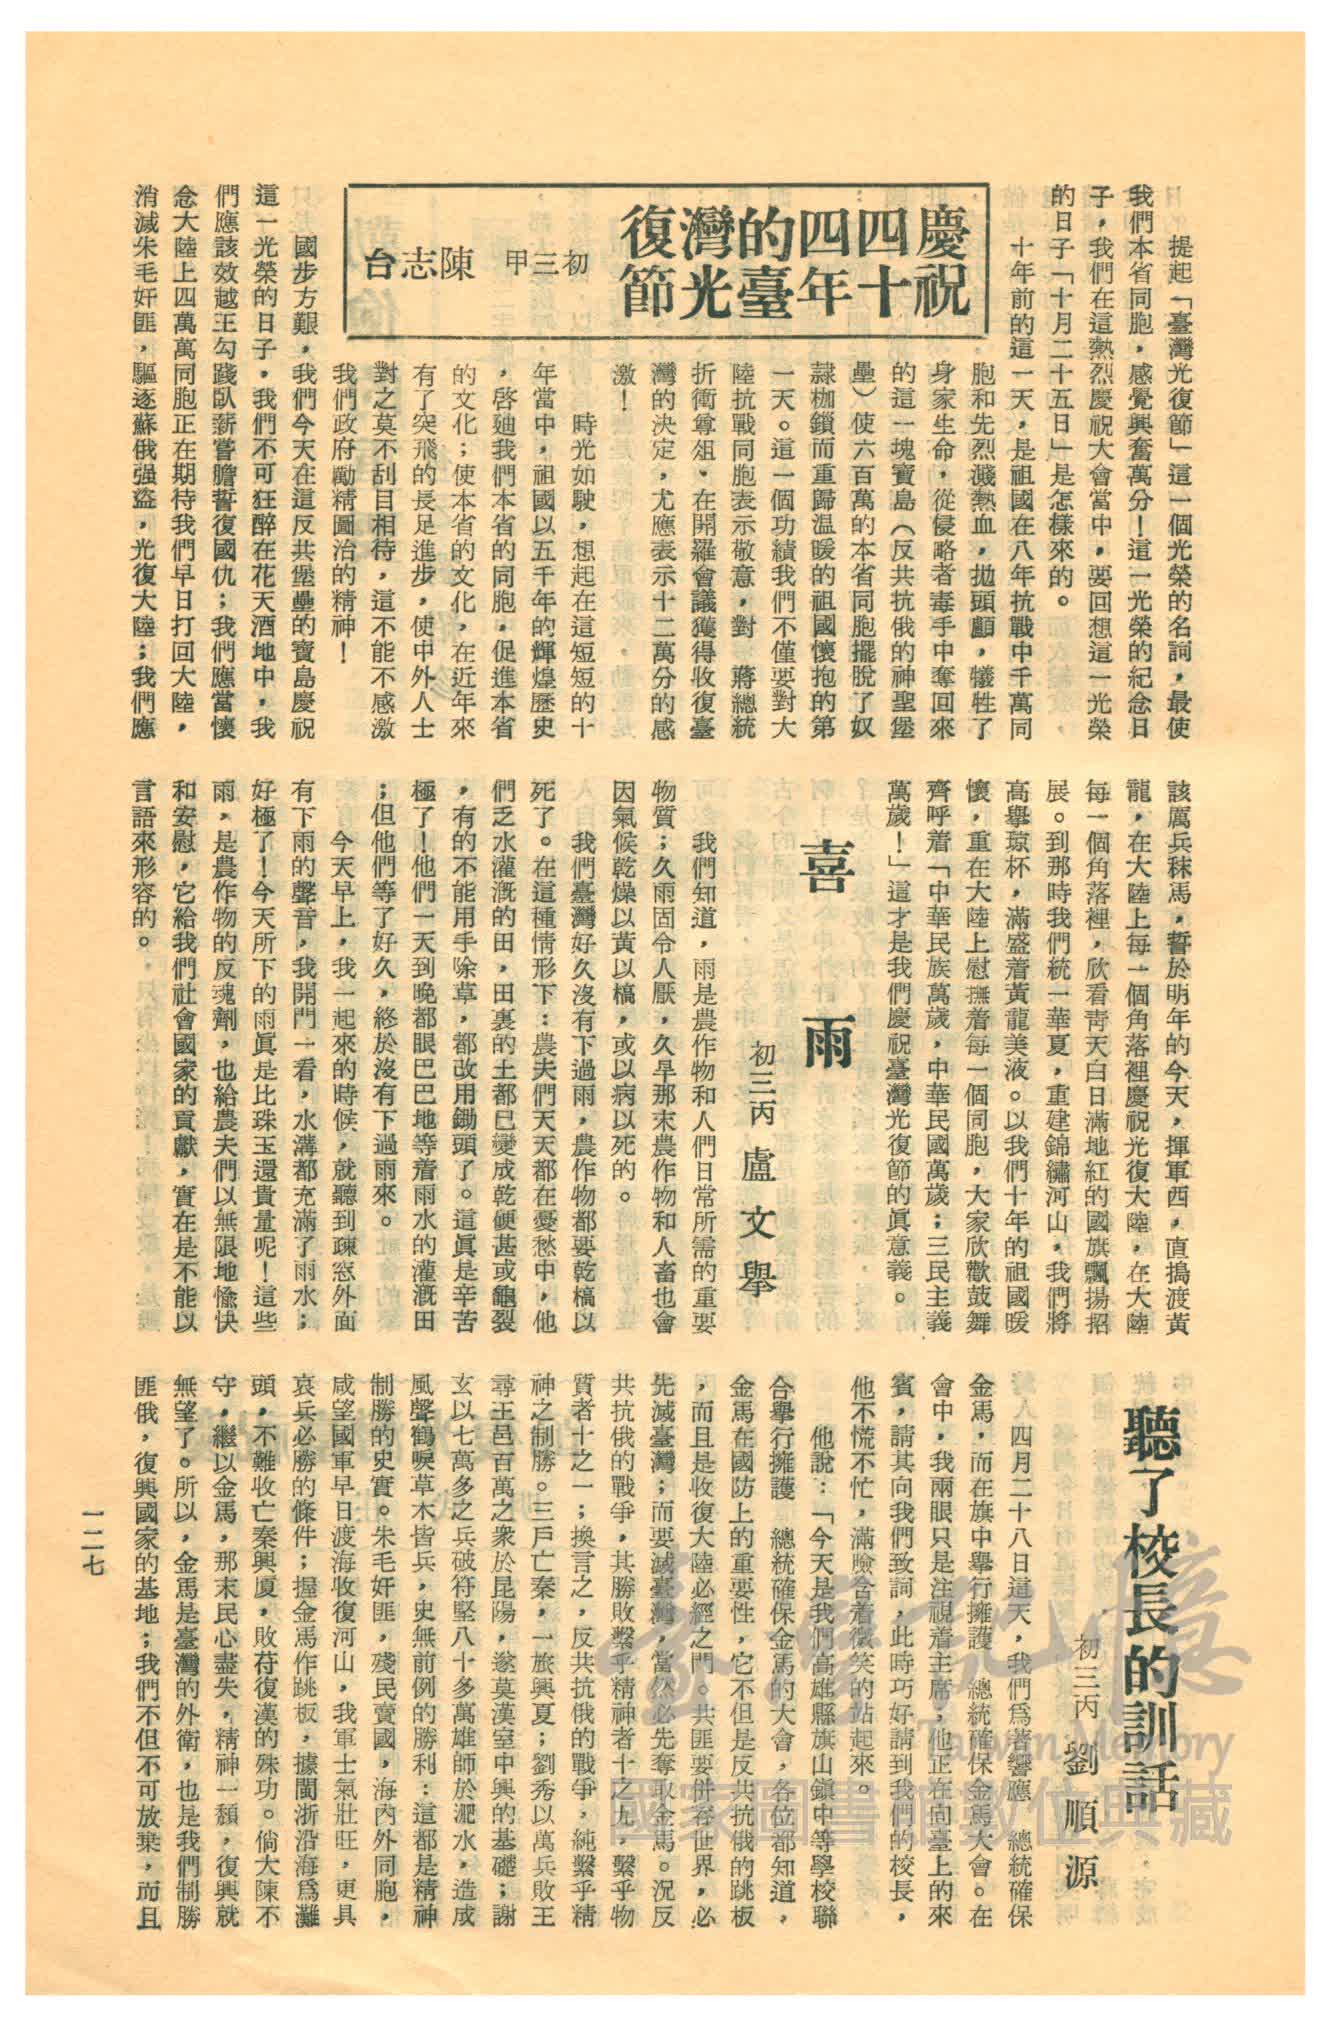 慶祝四十四年的臺灣光復節
初三甲 陳志台
提起「臺灣光復節」這一個光榮的名詞，最使
我們本省同胞，感覺興奮萬分！這一光榮的紀念日
子，我們在這熱烈慶祝大會當中，要回想這一光榮
的日子「十月二十五日」是怎樣來的。
十年前的這一天，是祖國在八年抗戰中千萬同
胞和先烈濺熱血，拋頭顱，犧牲了
身家生命，從侵略者毒手中奪回來
的這一塊寶島（反共抗俄的神聖堡
壘）使六百萬的本省同胞擺脫了奴
隷枷鎖而重歸温暖的祖國懷抱的第
一天。這一個功績我們不僅要對大
陸抗戰同胞表示敬意，對　蔣總統
折衝尊俎，在開羅會議獲得收復臺
灣的決定，尤應表示十二萬分的感
激！
時光如駛，想起在這短短的十
年當中，祖國以五千年的輝煌歷史
，啓廸我們本省的同胞，促進本省
的文化；使本省的文化，在近年來
有了突飛的長足進步，使中外人士
對之莫不刮目相待，這不能不感激
我們政府勵精圖治的精神！
國步方艱，我們今天在這反共堡壘的寶島慶祝
這一光榮的日子，我們不可狂醉在花天酒地中，我
們應該效越王勾踐臥薪嘗膽誓復國仇；我們應當懷
念大陸上四萬萬同胞正在期待我們早日打回大陸，
消滅朱毛奸匪，驅逐蘇俄强盜，光復大陸；我們應
該厲兵秣馬，誓於明年的今天，揮軍西，直搗渡黃
龍，在大陸上每一個角落裡慶祝光復大陸，在大陸
每一個角落裡，欣看靑天白日滿地紅的國旗飄揚招
展。到那時我們統一華夏，重建錦繡河山，我們將
高擧琼杯，滿盛着黃龍美液。以我們十年的祖國暖
懷，重在大陸上慰撫着每一個同胞，大家欣歡鼓舞
齊呼着「中華民族萬歲，中華民國萬歲；三民主義
萬歲！」這才是我們慶祝臺灣光復節的眞意義。
喜雨
初三丙 盧文擧
我們知道，雨是農作物和人們日常所需的重要
物質；久雨固令人厭，久旱那末農作物和人畜也會
因氣候乾燥以黃以槁，或以病以死的。
我們臺灣好久沒有下過雨，農作物都要乾槁以
死了。在這種情形下：農夫們天天都在憂愁中，他
們乏水灌漑的田，田裏的土都已變成乾硬甚或龜裂
，有的不能用手除草，都改用鋤頭了。這眞是辛苦
極了！他們一天到晚都眼巴巴地等着雨水的灌漑田
；但他們等了好久，終於沒有下過雨來。
今天早上，我一起來的時候，就聽到疎窓外面
有下雨的聲音，我開門一看，水溝都充滿了雨水；
好極了！今天所下的雨眞是比珠玉還貴量呢！這些
雨，是農作物的反魂劑，也給農夫們以無限地愉快
和安慰，它給我們社會國家的貢獻，實在是不能以
言語來形容的。
聽了校長的訓話
初三丙 劉順源
四月二十八日這天，我們爲着響應　總統確保
金馬，而在旗中擧行擁護　總統確保金馬大會。在
會中，我兩眼只是注視着主席，他正在向臺上的來
賓，請其向我們致詞，此時巧好請到我們的校長，
他不慌不忙，滿臉含着微笑的站起來。
他說：「今天是我們高雄縣旗山鎭中等學校聯
合擧行擁護　總統確保金馬的大會，各位都知道，
金馬在國防上的重要性，它不但是反共抗俄的跳板
，而且是收復大陸必經之門。共匪要併吞世界，必
先滅臺灣；而要滅臺灣，當然必先奪取金馬。況反
共抗俄的戰爭，其勝敗繫乎精神者十之九，繫乎物
質者十之一；換言之，反共抗俄的戰爭，純繫乎精
神之制勝。三戶亡秦，一旅興夏；劉秀以萬兵敗王
尋王邑百萬之衆於昆陽，遂莫漢室中興的基礎；謝
玄以七萬多之兵破符堅八十多萬雄師於淝水，造成
風聲鶴唳草木皆兵，史無前例的勝利：這都是精神
制勝的史實。朱毛奸匪，殘民賣國，海內外同胞，
咸望國軍早日渡海收復河山，我軍士氣壯旺，更具
哀兵必勝的條件；握金馬作跳板，據閩浙沿海爲灘
頭，不難收亡秦興厦，敗苻復漢的殊功。倘大陳不
守，繼以金馬，那末民心盡失，精神一頹，復興就
無望了。所以，金馬是臺灣的外衛，也是我們制勝
匪俄，復興國家的基地；我們不但不可放棄，而且
一二七
臺灣記憶
Taiwan Memory
國家圖書館數位典藏